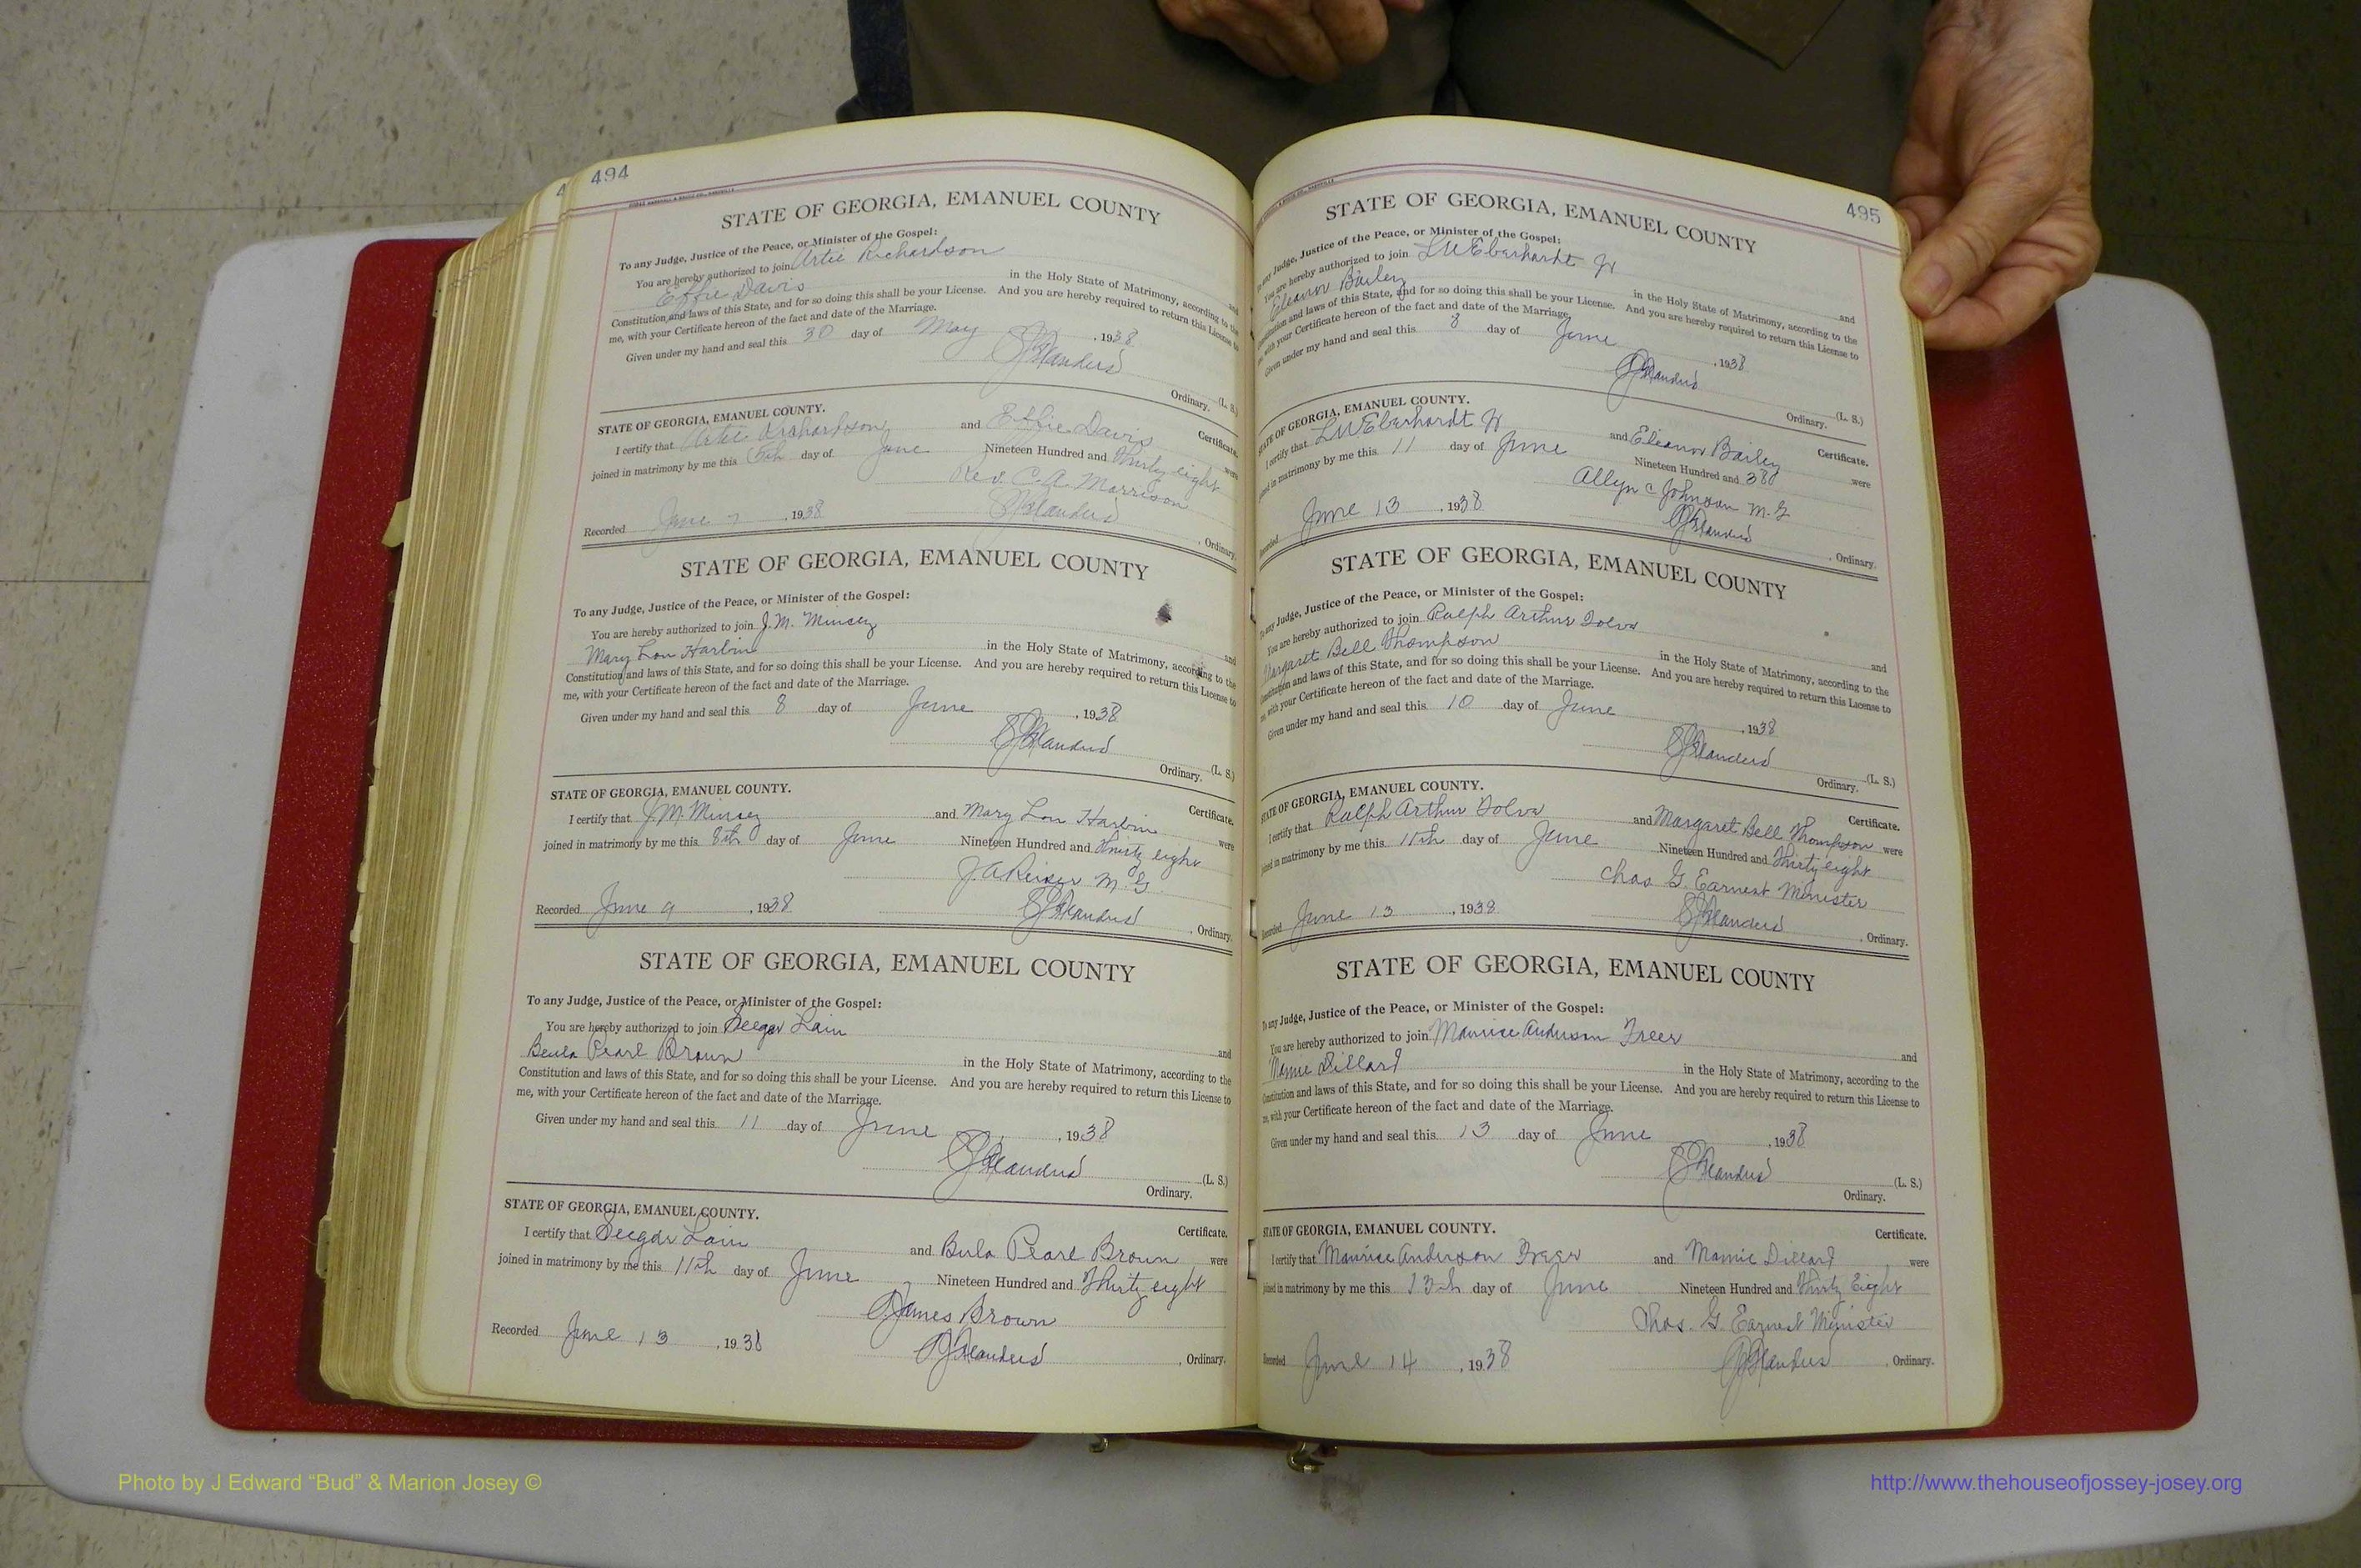 494
STATE OF GEORGIA, EMANUEL COUNTY
To any Judge, Justice of the Peace, or Minister of the Gospel:
You are hereby authorized to join Artie Richardson and
Effie Davis in the Holy State of Matrimony, according to the
Constitution and laws of this State, and for so doing this shall be your License. And you are hereby required to return this License to
me, with your Certificate hereon of the fact and date of the Marriage.
Given under my hand and seal this 30 day of May, 1938
(L. S.)
Ordinary.
STATE OF GEORGIA, EMANUEL COUNTY.
Certificate.
I certify that Artie Richardson and Effie Davis were
joined in matrimony by me this 5th day of June Nineteen Hundred and Thirty eight
Rev. C. A. Morrison
Recorded June 7, 1938, Ordinary.
STATE OF GEORGIA, EMANUEL COUNTY
To any Judge, Justice of the Peace, or Minister of the Gospel:
You are hereby authorized to join J. M. Mincey and
Mary Lou Harbin in the Holy State of Matrimony, according to the
Constitution and laws of this State, and for so doing this shall be your License. And you are hereby required to return this License to
me, with your Certificate hereon of the fact and date of the Marriage.
Given under my hand and seal this 8 day of June, 1938
(L. S.)
Ordinary.
STATE OF GEORGIA, EMANUEL COUNTY.
Certificate.
I certify that J M Mincey and Mary Lou Harbin were
joined in matrimony by me this 8th day of June Nineteen Hundred and Thirty eight
M. G.
Recorded June 9, 1938, Ordinary.
STATE OF GEORGIA, EMANUEL COUNTY
To any Judge, Justice of the Peace, or Minister of the Gospel:
You are hereby authorized to join Seegar Lain and
Beula Pearl Brown in the Holy State of Matrimony, according to the
Constitution and laws of this State, and for so doing this shall be your License. And you are hereby required to return this License to
me, with your Certificate hereon of the fact and date of the Marriage.
Given under my hand and seal this 11 day of June, 1938
(L. S.)
Ordinary.
STATE OF GEORGIA, EMANUEL COUNTY.
Certificate.
I certify that Seegar Lain and Bula Pearl Brown were
joined in matrimony by me this 11th day of June Nineteen Hundred and Thirty eight
James Brown
Recorded June 13, 1938, Ordinary.
495
STATE OF GEORGIA, EMANUEL COUNTY
any Judge, Justice of the Peace, or Minister of the Gospel:
You are hereby authorized to join L W Eberhardt Jr and
Eleanor Bailey in the Holy State of Matrimony, according to the
and laws of this State, and for so doing this shall be your License. And you are hereby required to return this License to
with your Certificate hereon of the fact and date of the Marriage.
Given under my hand and seal this 8 day of June, 1938
(L. S.)
Ordinary.
STATE OF GEORGIA, EMANUEL COUNTY.
Certificate.
I certify that L W Eberhardt Jr and Eleanor Bailey were
joined in matrimony by me this 11 day of June Nineteen Hundred and 38
Allyn C Johnson M. G
Recorded June 13, 1938, Ordinary.
STATE OF GEORGIA, EMANUEL COUNTY
To any Judge, Justice of the Peace, or Minister of the Gospel:
You are hereby authorized to join Ralph Arthur Tolve and
Margaret Bell Thompson in the Holy State of Matrimony, according to the
and laws of this State, and for so doing this shall be your License. And you are hereby required to return this License to
with your Certificate hereon of the fact and date of the Marriage.
Given under my hand and seal this 10 day of June, 1938
(L. S.)
Ordinary.
STATE OF GEORGIA, EMANUEL COUNTY.
Certificate.
I certify that Ralph Arthur Tolve and Margaret Bell Thompson were
joined in matrimony by me this 11th day of June Nineteen Hundred and Thirty eight
Chas G. Earnest Minister
Recorded June 13, 1938, Ordinary.
STATE OF GEORGIA, EMANUEL COUNTY
To any Judge, Justice of the Peace, or Minister of the Gospel:
You are hereby authorized to join Maurice Anderson Freer and
Mamie Dillard in the Holy State of Matrimony, according to the
Constitution and laws of this State, and for so doing this shall be your License. And you are hereby required to return this License to
with your Certificate hereon of the fact and date of the Marriage.
Given under my hand and seal this 13 day of June, 1938
(L. S.)
Ordinary.
STATE OF GEORGIA, EMANUEL COUNTY.
Certificate.
I certify that Maurice Anderson Freer and Mamie Dillard were
joined in matrimony by me this 13th day of June Nineteen Hundred and Thirty Eight
Chas. G. Earnest Minister
Recorded June 14, 1938, Ordinary.
Photo by J Edward “Bud” & Marion Josey ©
http://www.thehouseofjossey-josey.org